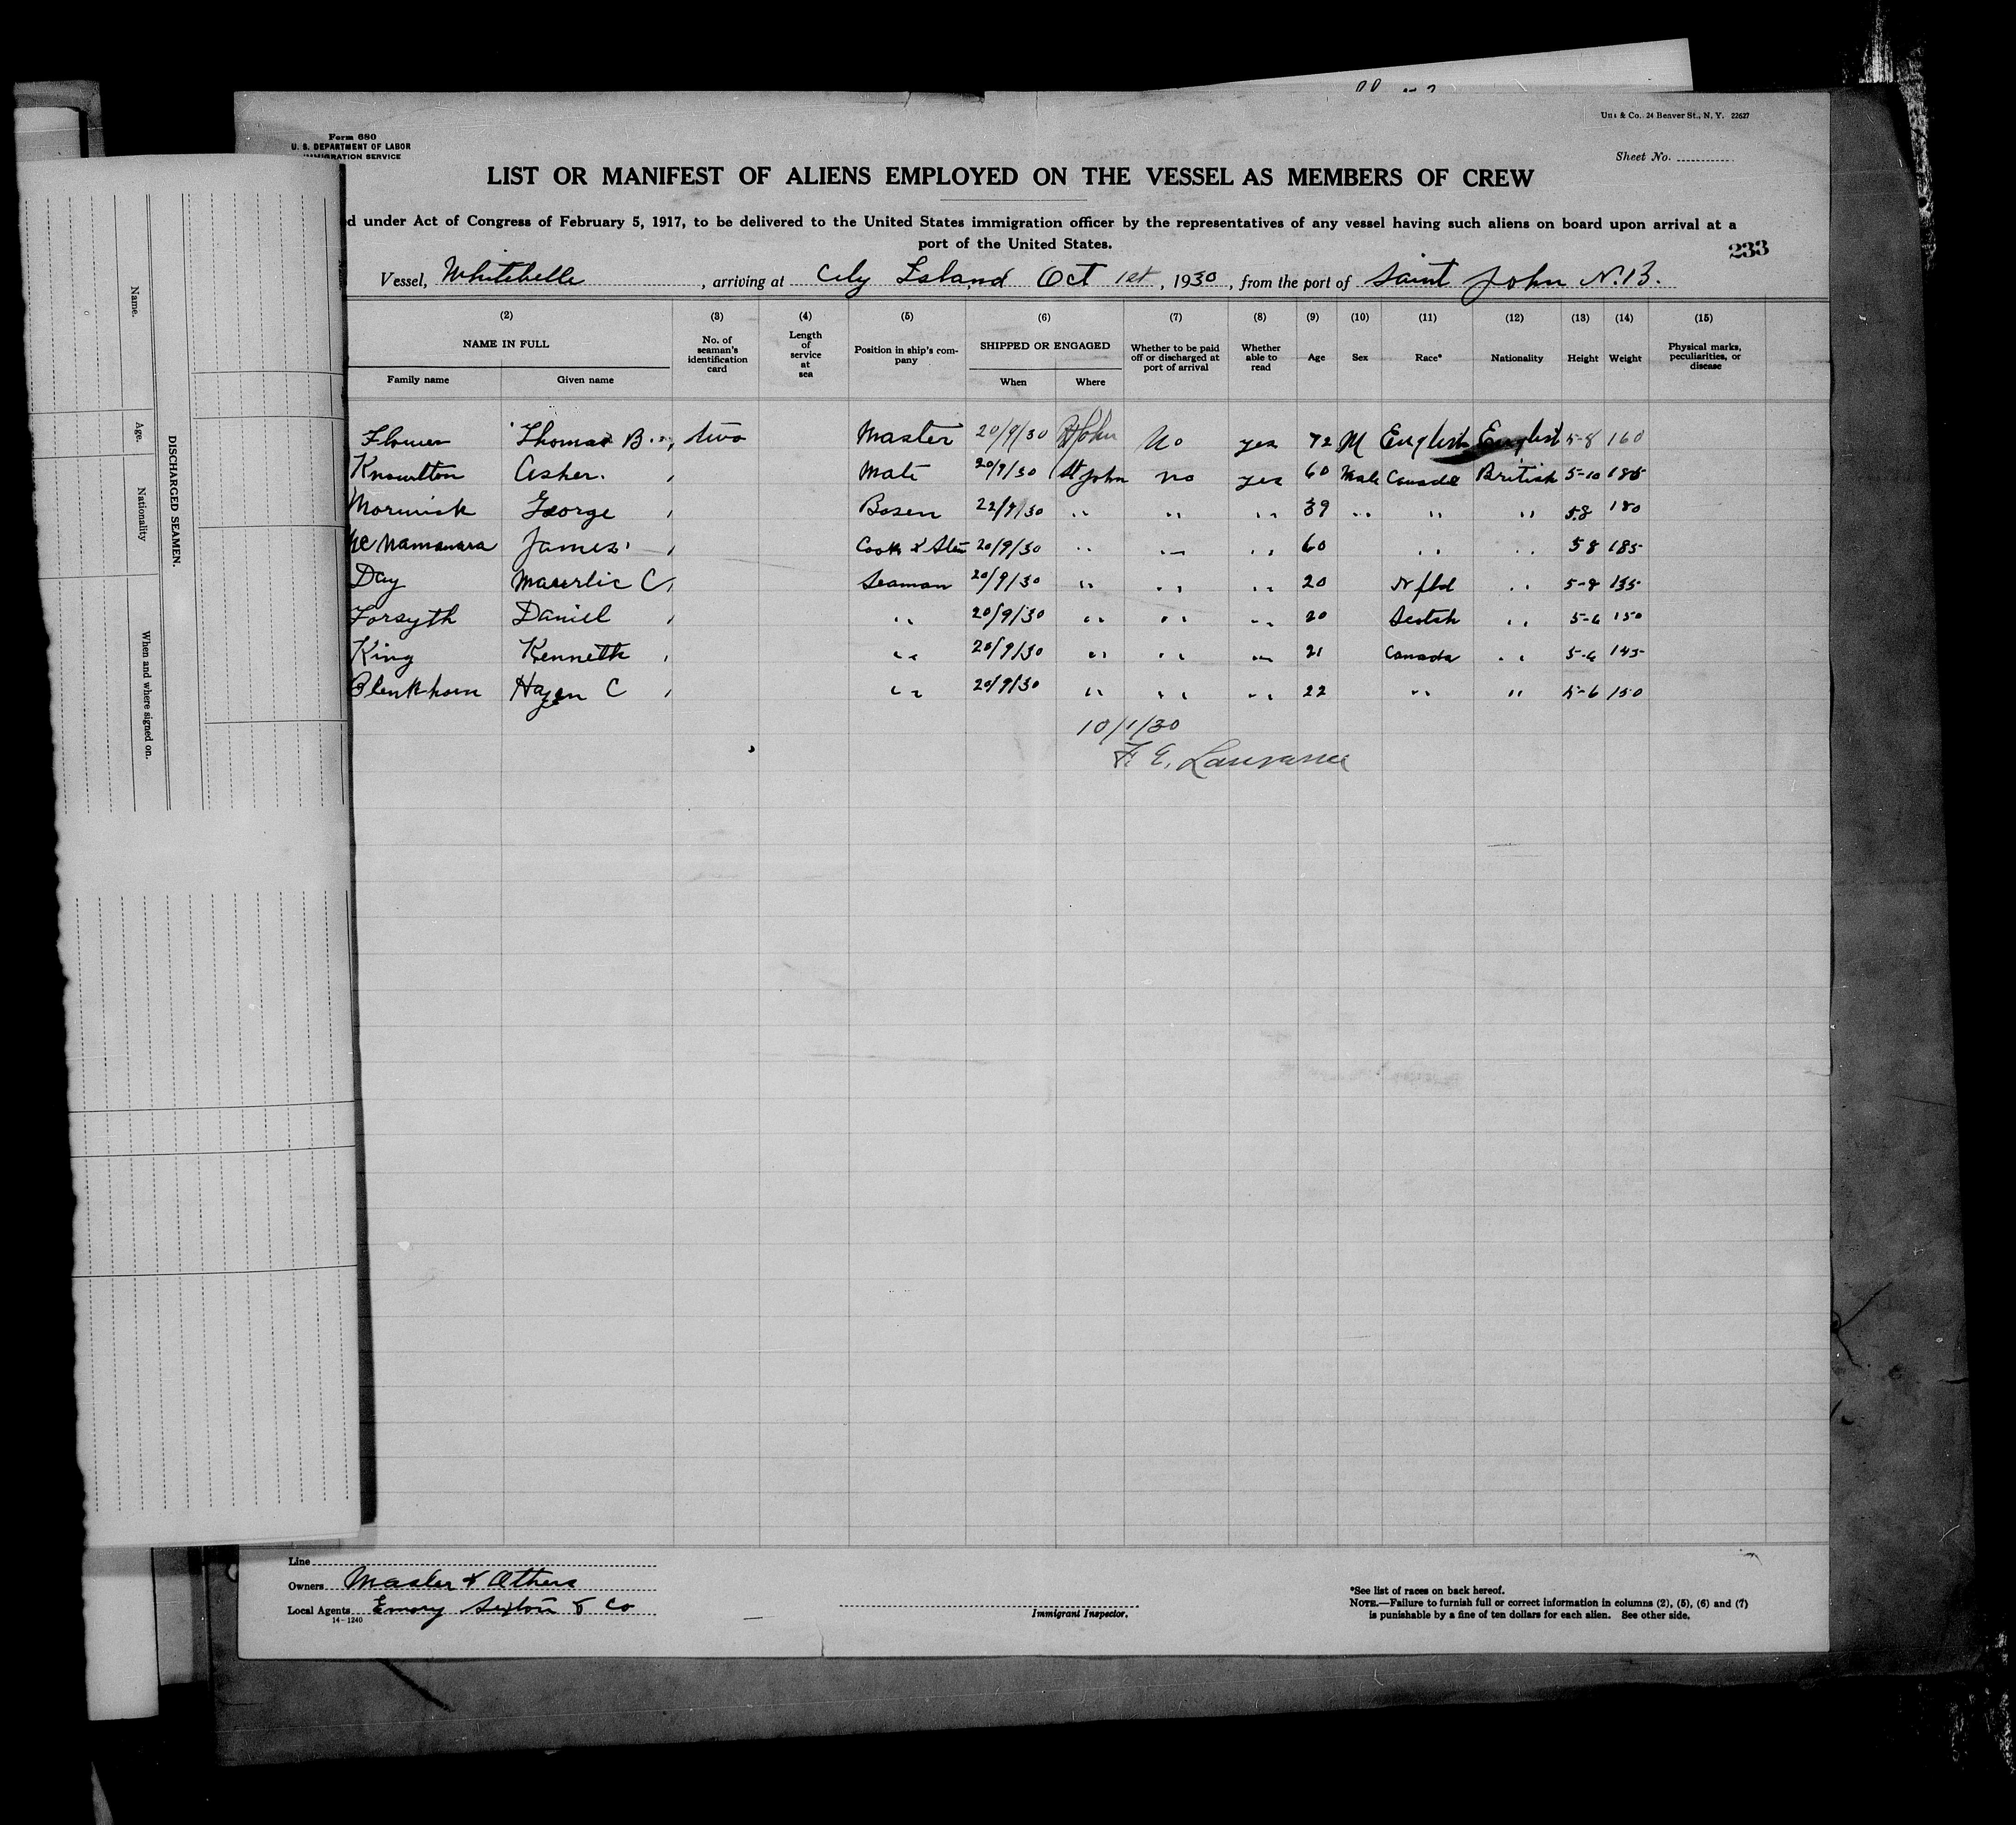 Form 680
U. S. DEPARTMENT OF LABOR
IMMIGRATION SERVICE
& Co., 24 Beaver St., N. Y. 22627
Sheet No.
LIST OR MANIFEST OF ALIENS EMPLOYED ON THE VESSEL AS MEMBERS OF CREW
ed under Act of Congress of February 5, 1917, to be delivered to the United States immigration officer by the representatives of any vessel having such aliens on board upon arrival at a
port of the United States.
233
Vessel, Whitebelle, arriving at City Island Oct 1st, 1930, from the port of Saint John N.B.
(2) (3) (4) (5) (6) (7) (8) (9) (10) (11) (12) (13) (14) (15)
NAME IN FULL No. of seaman's identification card Length of service at sea Position in ship's company SHIPPED OR ENGAGED Whether to be paid off or discharged at port of arrival Whether able to read Age Sex Race* Nationality Height Weight Physical marks, peculiarities, or disease
Family name Given name When Where
Flower Thomas B. two Master 20/9/30 St John No yes 72 M English English 5-8 160
Knowlton Asher. Mate 20/9/30 St John no yes 60 Male Canada British 5-10 185
George Bosen 22/9/30 " " " 39 " " " 5.8 180
McNamara James Cook & 20/9/30 " " " 60 " " 5 8 185
Day C Seaman 20/9/30 " " " 20 Nfld " 5-8 135
Forsyth Daniel " 20/9/30 " " " 20 Scotch " 5-6 150
King Kenneth " 20/9/30 " " " 21 Canada " 5-6 145
Blenkhorn Hazen C " 20/9/30 " " " 22 " " 5-6 150
10/1/30
F. E. Laurance
Line
Owners Master & Others
Local Agents Emory & Co
14-1240
Immigrant Inspector.
*See list of races on back hereof.
NOTE.—Failure to furnish full or correct information in columns (2), (5), (6) and (7)
is punishable by a fine of ten dollars for each alien. See other side.
DISCHARGED SEAMEN.
Name.
Age.
Nationality
When and where signed on.